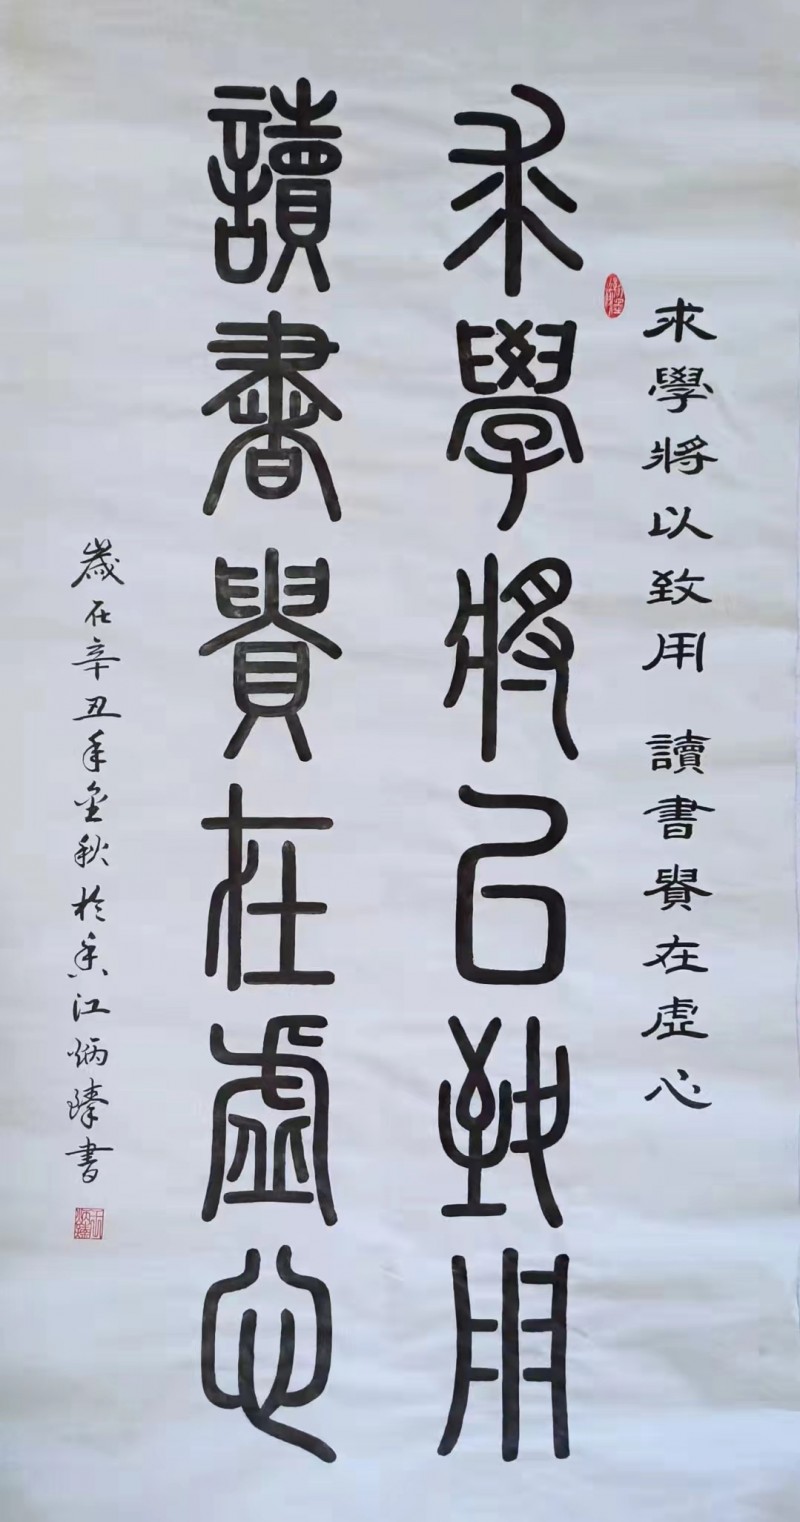 求學將以致用 讀書貴在虛心
求學將㠯致用
讀書貴在虛心
歲在辛丑年金秋於香江炳臻書